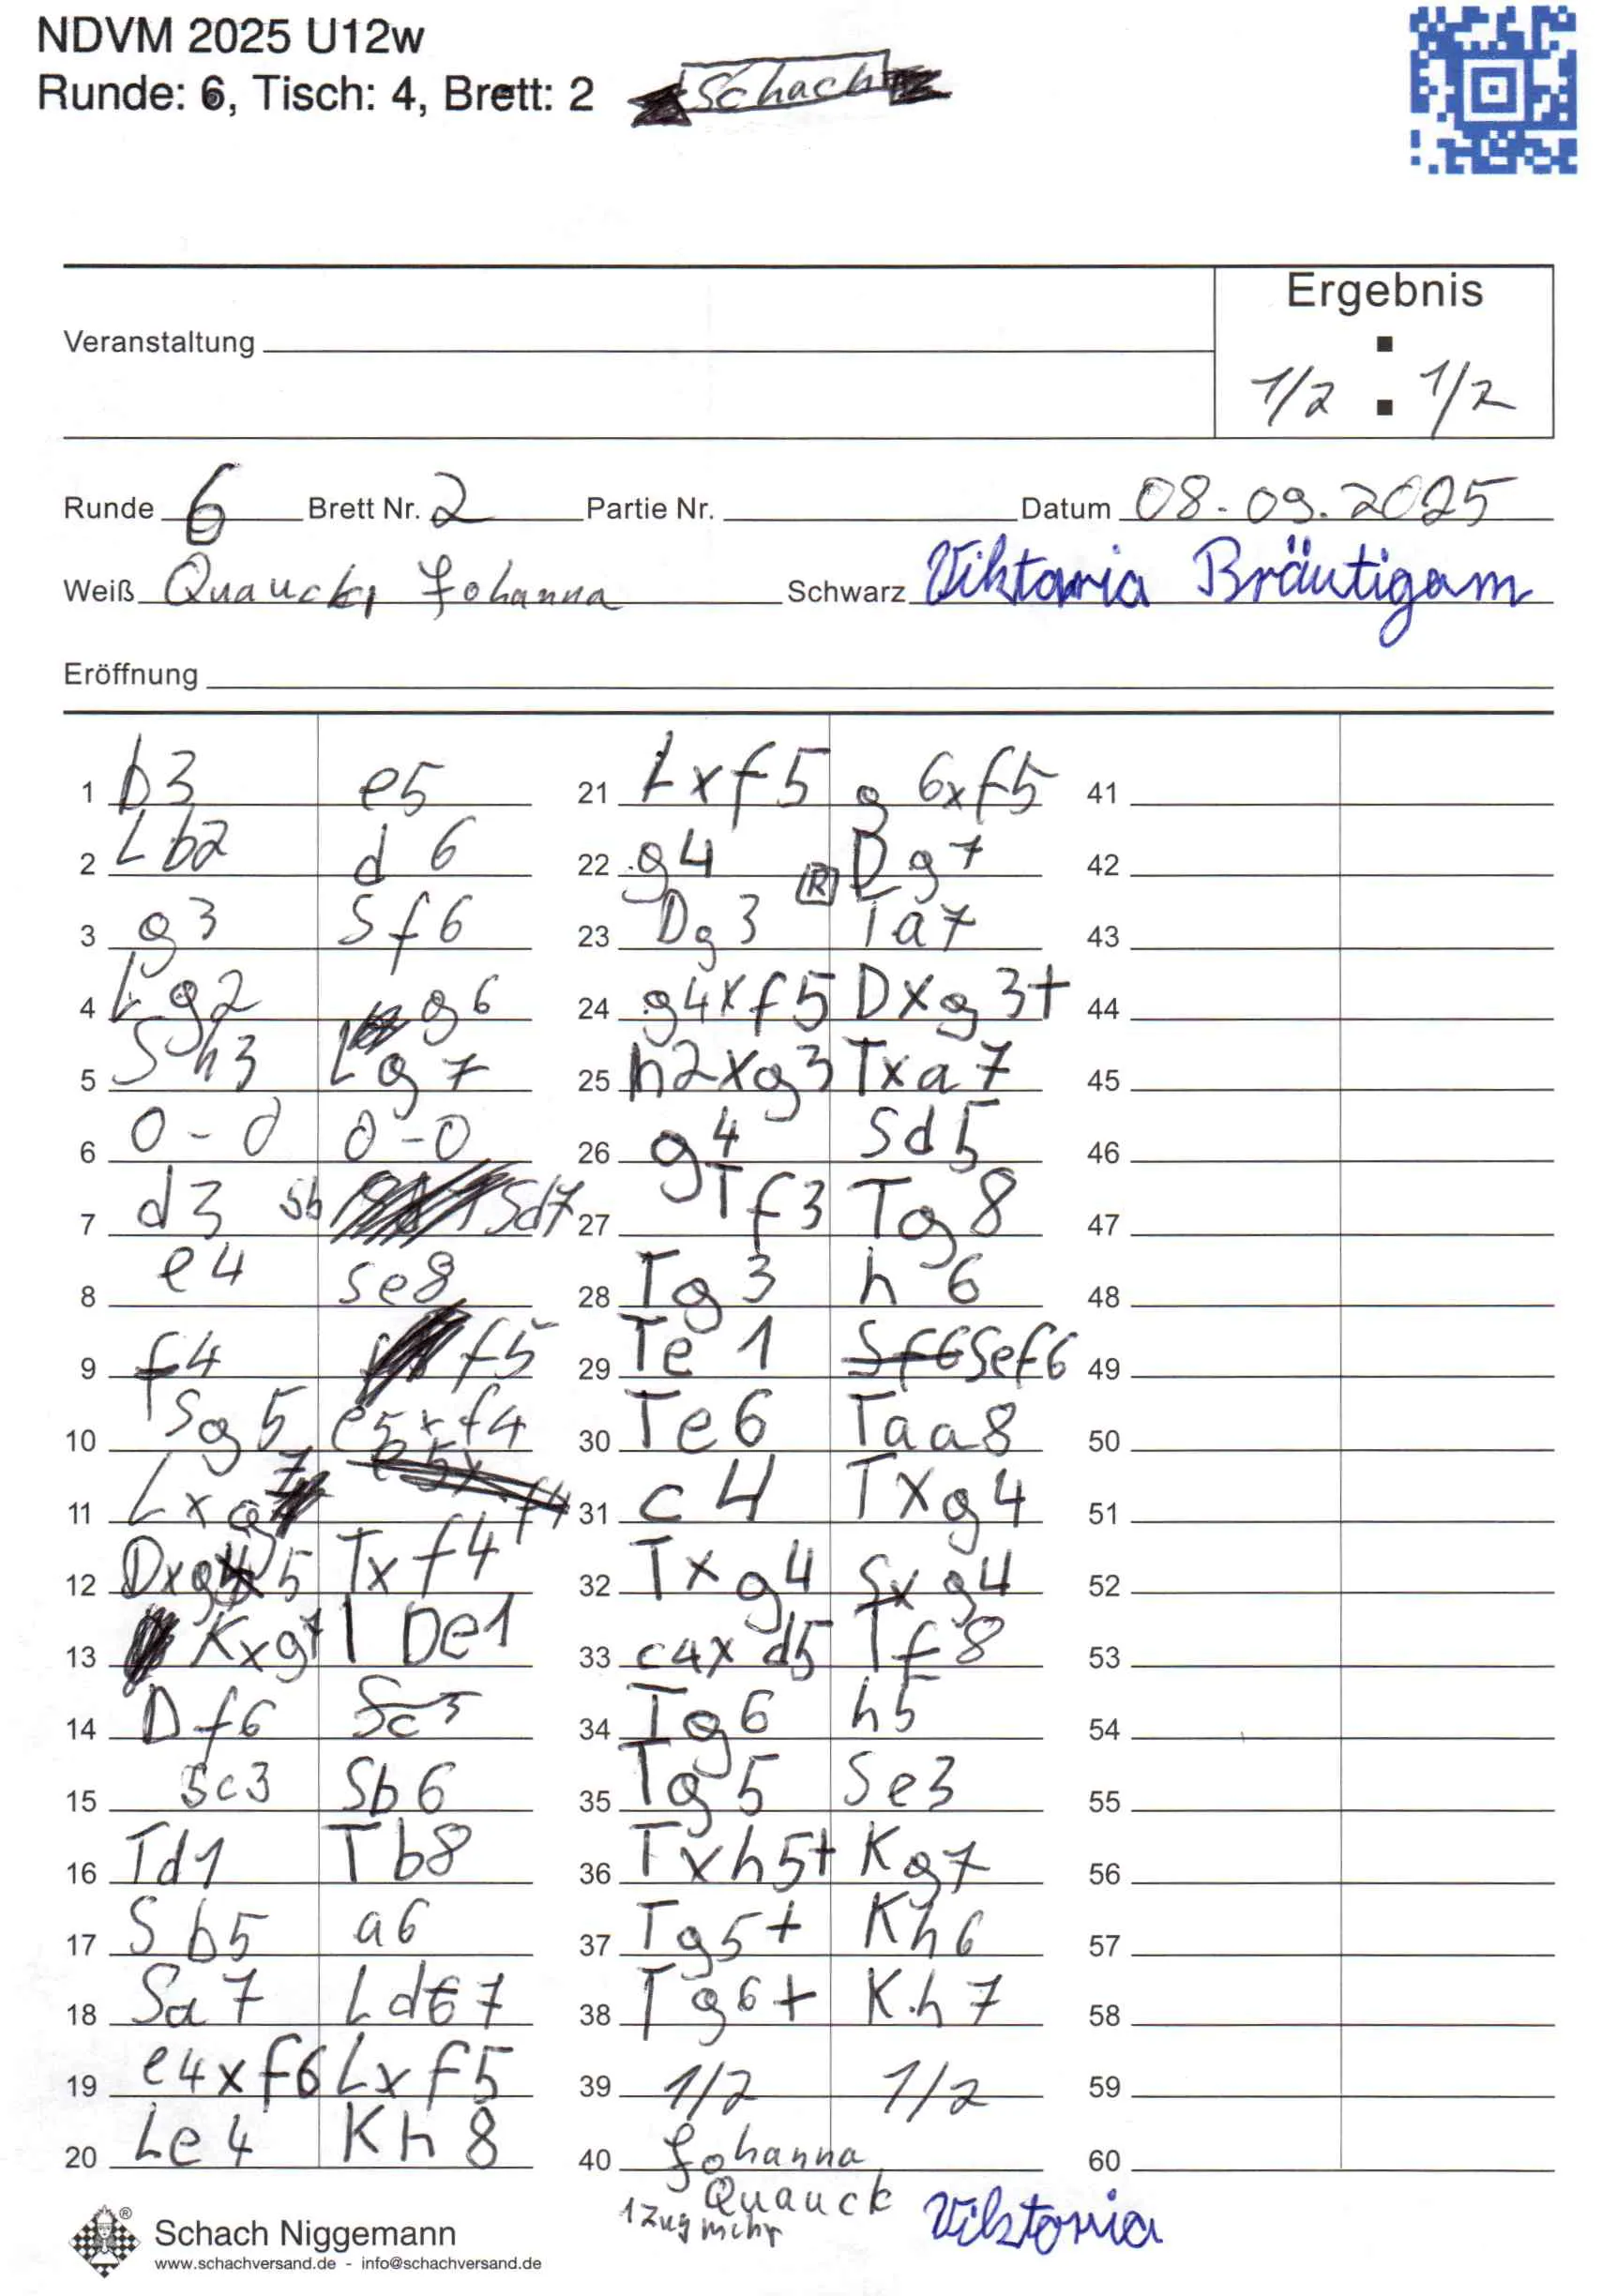 NDVM 2025 U12w
Runde: 6, Tisch: 4, Brett: 2 Schach
Ergebnis
Veranstaltung
1/2 : 1/2
Runde 6 Brett Nr. 2 Partie Nr. Datum 08.09.2025
Weiß Quauck, Johanna Schwarz Viktoria Bräutigam
Eröffnung
1 b3 e5 21 Lxf5 g6xf5 41
2 Lb2 d6 22 g4 R Dg7 42
3 g3 Sf6 23 Dg3 Ta7 43
4 Lg2 g6 24 g4xf5 Dxg3+ 44
5 Sh3 Lg7 25 h2xg3 Txa7 45
6 0-0 0-0 26 g4 Sd5 46
7 d3 Sb Sd7 27 Tf3 Tg8 47
8 e4 Se8 28 Tg3 h6 48
9 f4 f5 29 Te1 Sf6 Sef6 49
10 Sg5 e5xf4 30 Te6 Taa8 50
e5xf4
11 Lxg7 31 c4 Txg4 51
12 Dxg5 Txf4 32 Txg4 Sxg4 52
13 Kxg1 De1 33 c4xd5 Tf8 53
14 Df6 Sc5 34 Tg6 h5 54
15 Sc3 Sb6 35 Tg5 Se3 55
16 Td1 Tb8 36 Txh5+ Kg7 56
17 Sb5 a6 37 Tg5+ Kh6 57
18 Sa7 Ld7 38 Tg6+ Kh7 58
19 e4xf6 Lxf5 39 1/2 1/2 59
20 Le4 Kh8 40 Johanna 60
Quauck
1 Zug mehr Viktoria
Schach Niggemann
www.schachversand.de - info@schachversand.de